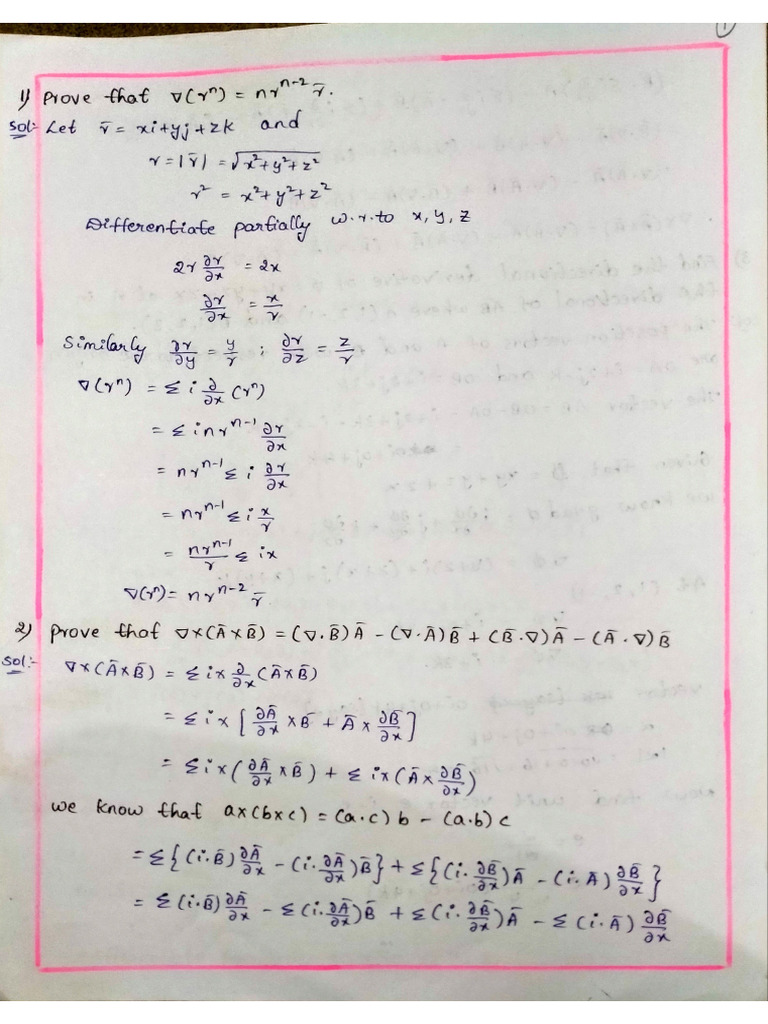 1
1) Prove that ∇(rⁿ) = nrⁿ⁻² r̄.
Sol:- Let r̄ = xi+yj+zk and
r = |r̄| = √(x²+y²+z²)
r² = x²+y²+z²
Differentiate partially w.r.to x, y, z
2r ∂r/∂x = 2x
∂r/∂x = x/r
Similarly ∂r/∂y = y/r ; ∂r/∂z = z/r
∇(rⁿ) = Σ i ∂/∂x (rⁿ)
= Σ i nrⁿ⁻¹ ∂r/∂x
= nrⁿ⁻¹ Σ i ∂r/∂x
= nrⁿ⁻¹ Σ i x/r
= nrⁿ⁻¹/r Σ ix
∇(rⁿ) = nrⁿ⁻² r̄
2) Prove that ∇×(Ā×B̄) = (∇·B̄)Ā - (∇·Ā)B̄ + (B̄·∇)Ā - (Ā·∇)B̄
Sol:- ∇×(Ā×B̄) = Σ i× ∂/∂x (Ā×B̄)
= Σ i× [∂Ā/∂x × B̄ + Ā × ∂B̄/∂x]
= Σ i× (∂Ā/∂x × B̄) + Σ i× (Ā × ∂B̄/∂x)
we know that a×(b×c) = (a·c) b - (a·b) c
= Σ{(i·B̄) ∂Ā/∂x - (i·∂Ā/∂x)B̄} + Σ{(i·∂B̄/∂x)Ā - (i·Ā) ∂B̄/∂x}
= Σ (i·B̄) ∂Ā/∂x - Σ (i·∂Ā/∂x)B̄ + Σ (i·∂B̄/∂x)Ā - Σ (i·Ā) ∂B̄/∂x